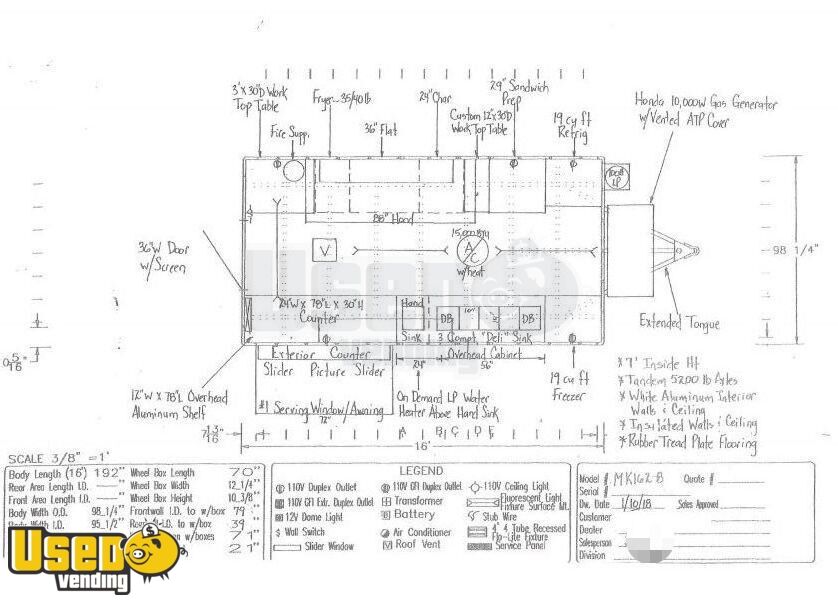 3'x30"D Work
Top Table
Fryer 35/40lb
24" Char
29" Sandwich
Prep
Honda 10,000W Gas Generator
w/Vented ATP Cover
Fire Supp.
36" Flat
Custom 12"x30"D
Work Top Table
19 cu ft
Refrig
100lb
LP
88" Hood
15,000 Btu
A/C
w/heat
V
98 1/4"
36"W Door
w/Screen
24"W x 78"L x 30"H
Counter
Hand
Sink
DB
DB
3 Compt. "Deli" Sink
Extended Tongue
Exterior Counter
Overhead Cabinet
Slider Picture Slider
24"
56"
12"W x 78"L Overhead
Aluminum Shelf
#1 Serving Window/Awning
72"
On Demand LP Water
Heater Above Hand Sink
19 cu ft
Freezer
* 7' Inside Ht
* Tandem 5200 lb Axles
* White Aluminum Interior
Walls & Ceiling
* Insulated Walls & Ceiling
* Rubber Tread Plate Flooring
A B C D E
16'
SCALE 3/8" =1'
Body Length (16') 192" Wheel Box Length 70"
Rear Area Length I.D. Wheel Box Width 12_1/4"
Front Area Length I.D. Wheel Box Height 10_3/8"
Body Width O.D. 98_1/4" Frontwall I.D. to w/box 79"
Body Width I.D. 95_1/2" to w/box 39"
w/boxes 71"
21"
LEGEND
110V Duplex Outlet
110V GFI Duplex Outlet
110V Ceiling Light
110V GFI Extr. Duplex Outlet
Transformer
Fluorescent Light
Fixture Surface Mt.
12V Dome Light
Battery
Stub Wire
Wall Switch
Air Conditioner
4' 4 Tube Recessed
Flo-Lite Fixture
Slider Window
Roof Vent
Service Panel
Model# MK162-8 Quote #
Serial #
Dw. Date 1/10/18 Sales Approved
Customer
Dealer
Salesperson
Division
USED
vending